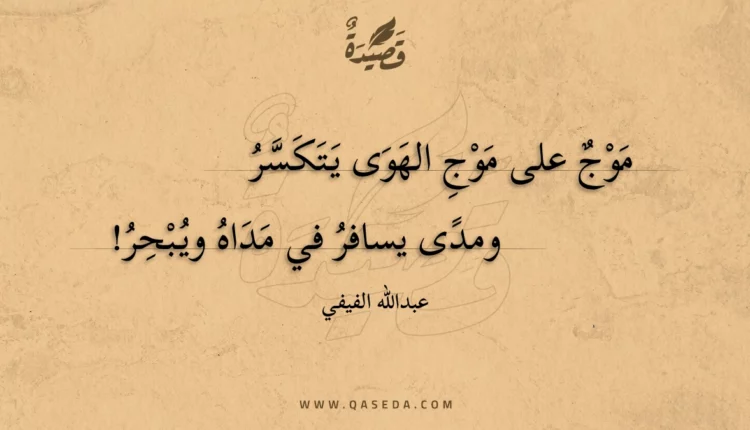 قَصِيْدَةٌ
مَوْجٌ على مَوْجِ الهَوَى يَتَكَسَّرُ
ومدًى يسافرُ في مَدَاهُ ويُبْحِرُ!
عبدالله الفيفي
WWW.QASEDA.COM